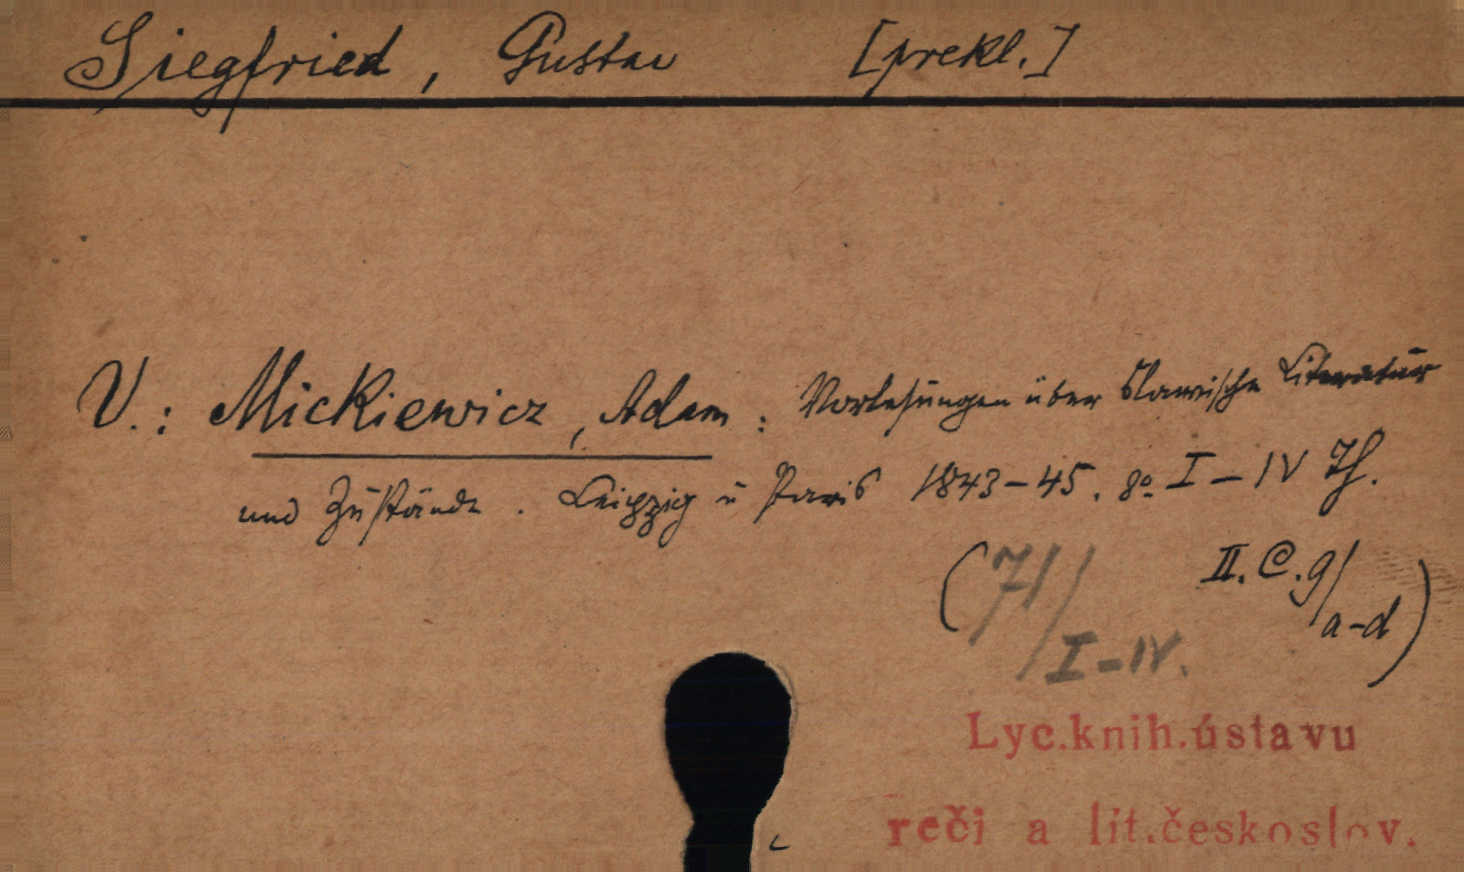 Siegfried, Gustav [prekl.]
V.: Mickiewicz, Adam: Vorlesungen über slawische Literatur
und Zustände. Leipzig u Paris 1843-45. 8º I-IV Th.
(71/I-IV. II.C.9/a-d)
Lyc.knih.ústavu
reči a lit.českoslov.